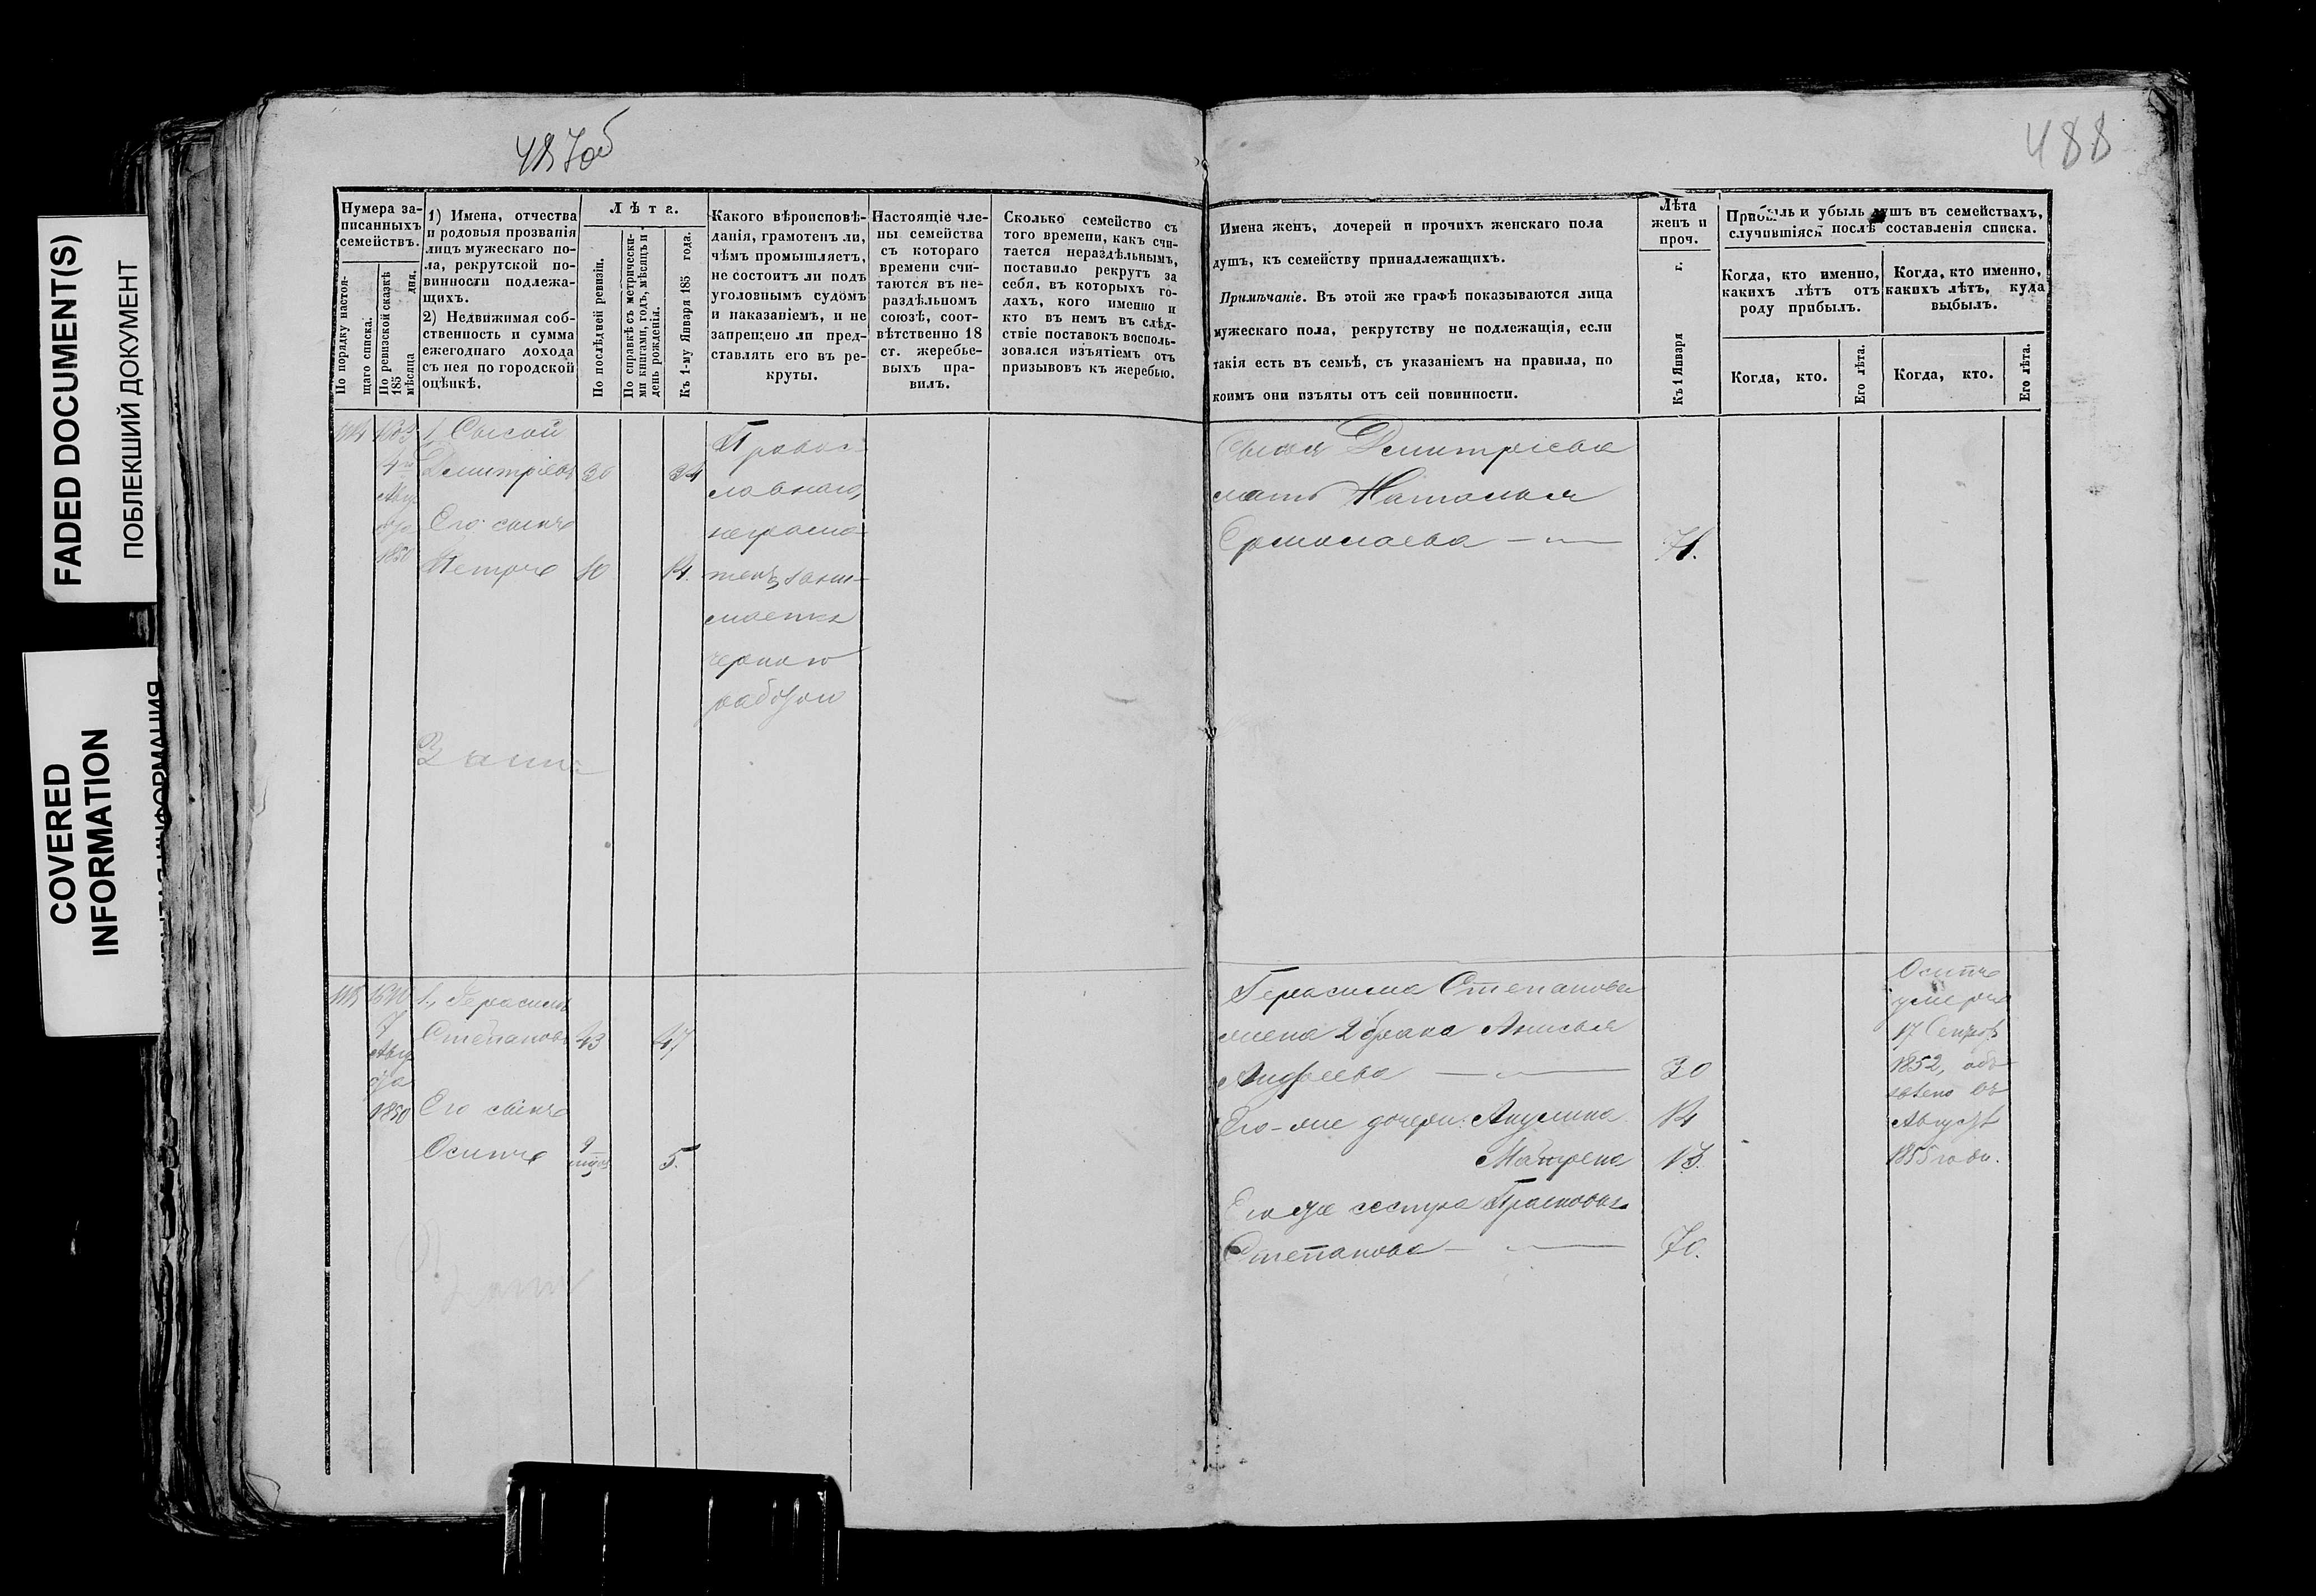 FADED DOCUMENT(S)
ПОБЛЕКШИЙ ДОКУМЕНТ
COVERED
INFORMATION
487об
488
Нумера за-
писанныхъ
семействъ.
По порядку настоя-
щаго списка.
По ревизской сказкѣ
185
мѣсяца дня.
1) Имена, отчества
и родовыя прозванія
лицъ мужескаго по-
ла, рекрутской по-
винности подлежа-
щихъ.
2) Недвижимая соб-
ственность и сумма
ежегоднаго дохода
съ нея по городской
оцѣнкѣ.
Лѣта.
По послѣдней ревизіи.
По справкѣ съ метрически-
ми книгами, годъ, мѣсяцъ и
день рожденія.
Къ 1-му Января 185 года.
Какого вѣроисповѣ-
данія, грамотенъ ли,
чѣмъ промышляетъ,
не состоитъ ли подъ
уголовнымъ судомъ
и наказаніемъ, и не
запрещено ли пред-
ставлять его въ ре-
круты.
Настоящіе чле-
ны семейства
съ котораго
времени счи-
таются въ не-
раздѣльномъ
союзѣ, соот-
вѣтственно 18
ст. жеребье-
выхъ пра-
вилъ.
Сколько семейство съ
того времени, какъ счи-
тается нераздѣльнымъ,
поставило рекрутъ за
себя, въ которыхъ го-
дахъ, кого именно и
кто въ немъ въ слѣд-
ствіе поставокъ восполь-
зовался изъятіемъ отъ
призывовъ къ жеребью.
Имена женъ, дочерей и прочихъ женскаго пола
душъ, къ семейству принадлежащихъ.
Примѣчаніе. Въ этой же графѣ показываются лица
мужескаго пола, рекрутству не подлежащія, если
такія есть въ семьѣ, съ указаніемъ на правила, по
коимъ они изъяты отъ сей повинности.
Лѣта
женъ и
проч.
Къ 1 Января г.
Прибыль и убыль душъ въ семействахъ,
случившіяся послѣ составленія списка.
Когда, кто именно,
какихъ лѣтъ отъ
роду прибылъ.
Когда, кто именно,
какихъ лѣтъ, куда
выбылъ.
Когда, кто.
Его лѣта.
Когда, кто.
Его лѣта.
1.
Дмитріевъ 30 34
Его сынъ
Петръ 10 14.
1850
Правос-
лавнаго,
неграмо-
тенъ, зани-
мается
черною
работою
Дмитріева
мать Наталья
Ермолаева 71.
1., Герасимъ
Степановъ 43 47
1850 Его сынъ
Осипъ 5.
Герасима Степанова
жена 2 брака Анисья
Андреева 30
Его-же дочери: Акулина 14
Матрена 13.
Его же сестра Прасковья
Степанова 70.
Осипъ
умеръ
17
1852, объ-
явлено въ
Августѣ
1855 года.